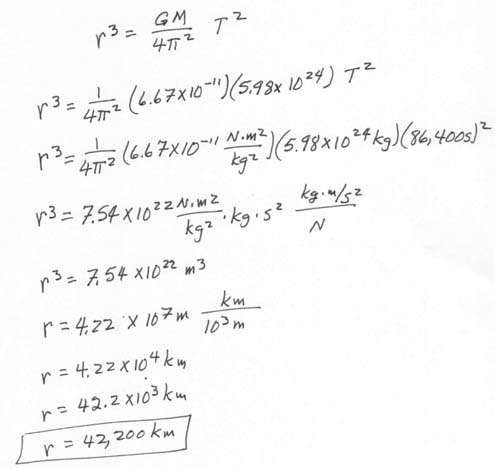 r³ = GM/4π² T²
r³ = 1/4π² (6.67×10⁻¹¹)(5.98×10²⁴) T²
r³ = 1/4π² (6.67×10⁻¹¹ N·m²/kg²)(5.98×10²⁴ kg)(86,400s)²
r³ = 7.54×10²² N·m²/kg² · kg · s² kg·m/s²/N
r³ = 7.54×10²² m³
r = 4.22 ×10⁷m km/10³m
r = 4.22×10⁴ km
r = 42.2×10³ km
r = 42,200 km